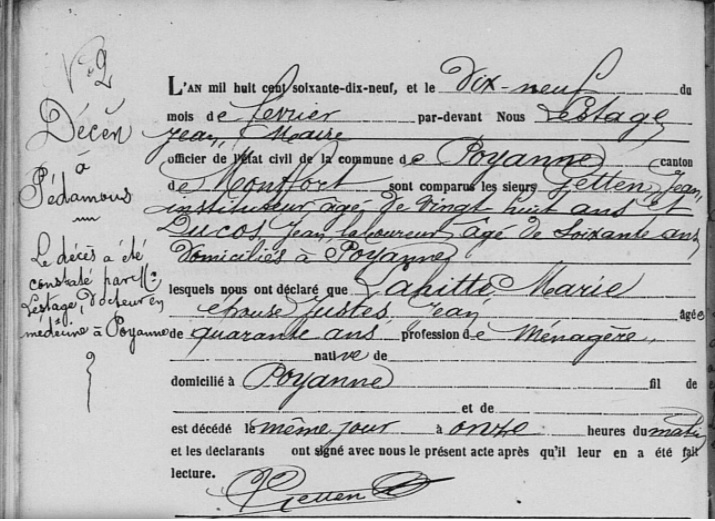 No 2
Décès
à
Pédamous
Le décès a été
constaté par Mr
Lestage, Docteur en
médecine à Poyanne
L'AN mil huit cent soixante-dix-neuf, et le Dix-neuf du
mois de février par-devant Nous Lestage
Jean, Maire
officier de l'état civil de la commune de Poyanne canton
de Montfort sont comparus les sieurs Getten Jean,
instituteur âgé de vingt huit ans et
Ducos Jean laboureur âgé de soixante ans
domiciliés à Poyanne
lesquels nous ont déclaré que Lahitte Marie
épouse Justes Jean âgée
de quarante ans profession de Ménagère,
native de
domicilié à Poyanne fil de
et de
est décédé le même jour à onze heures du matin
et les déclarants ont signé avec nous le présent acte après qu'il leur en a été fait
lecture.
Getten